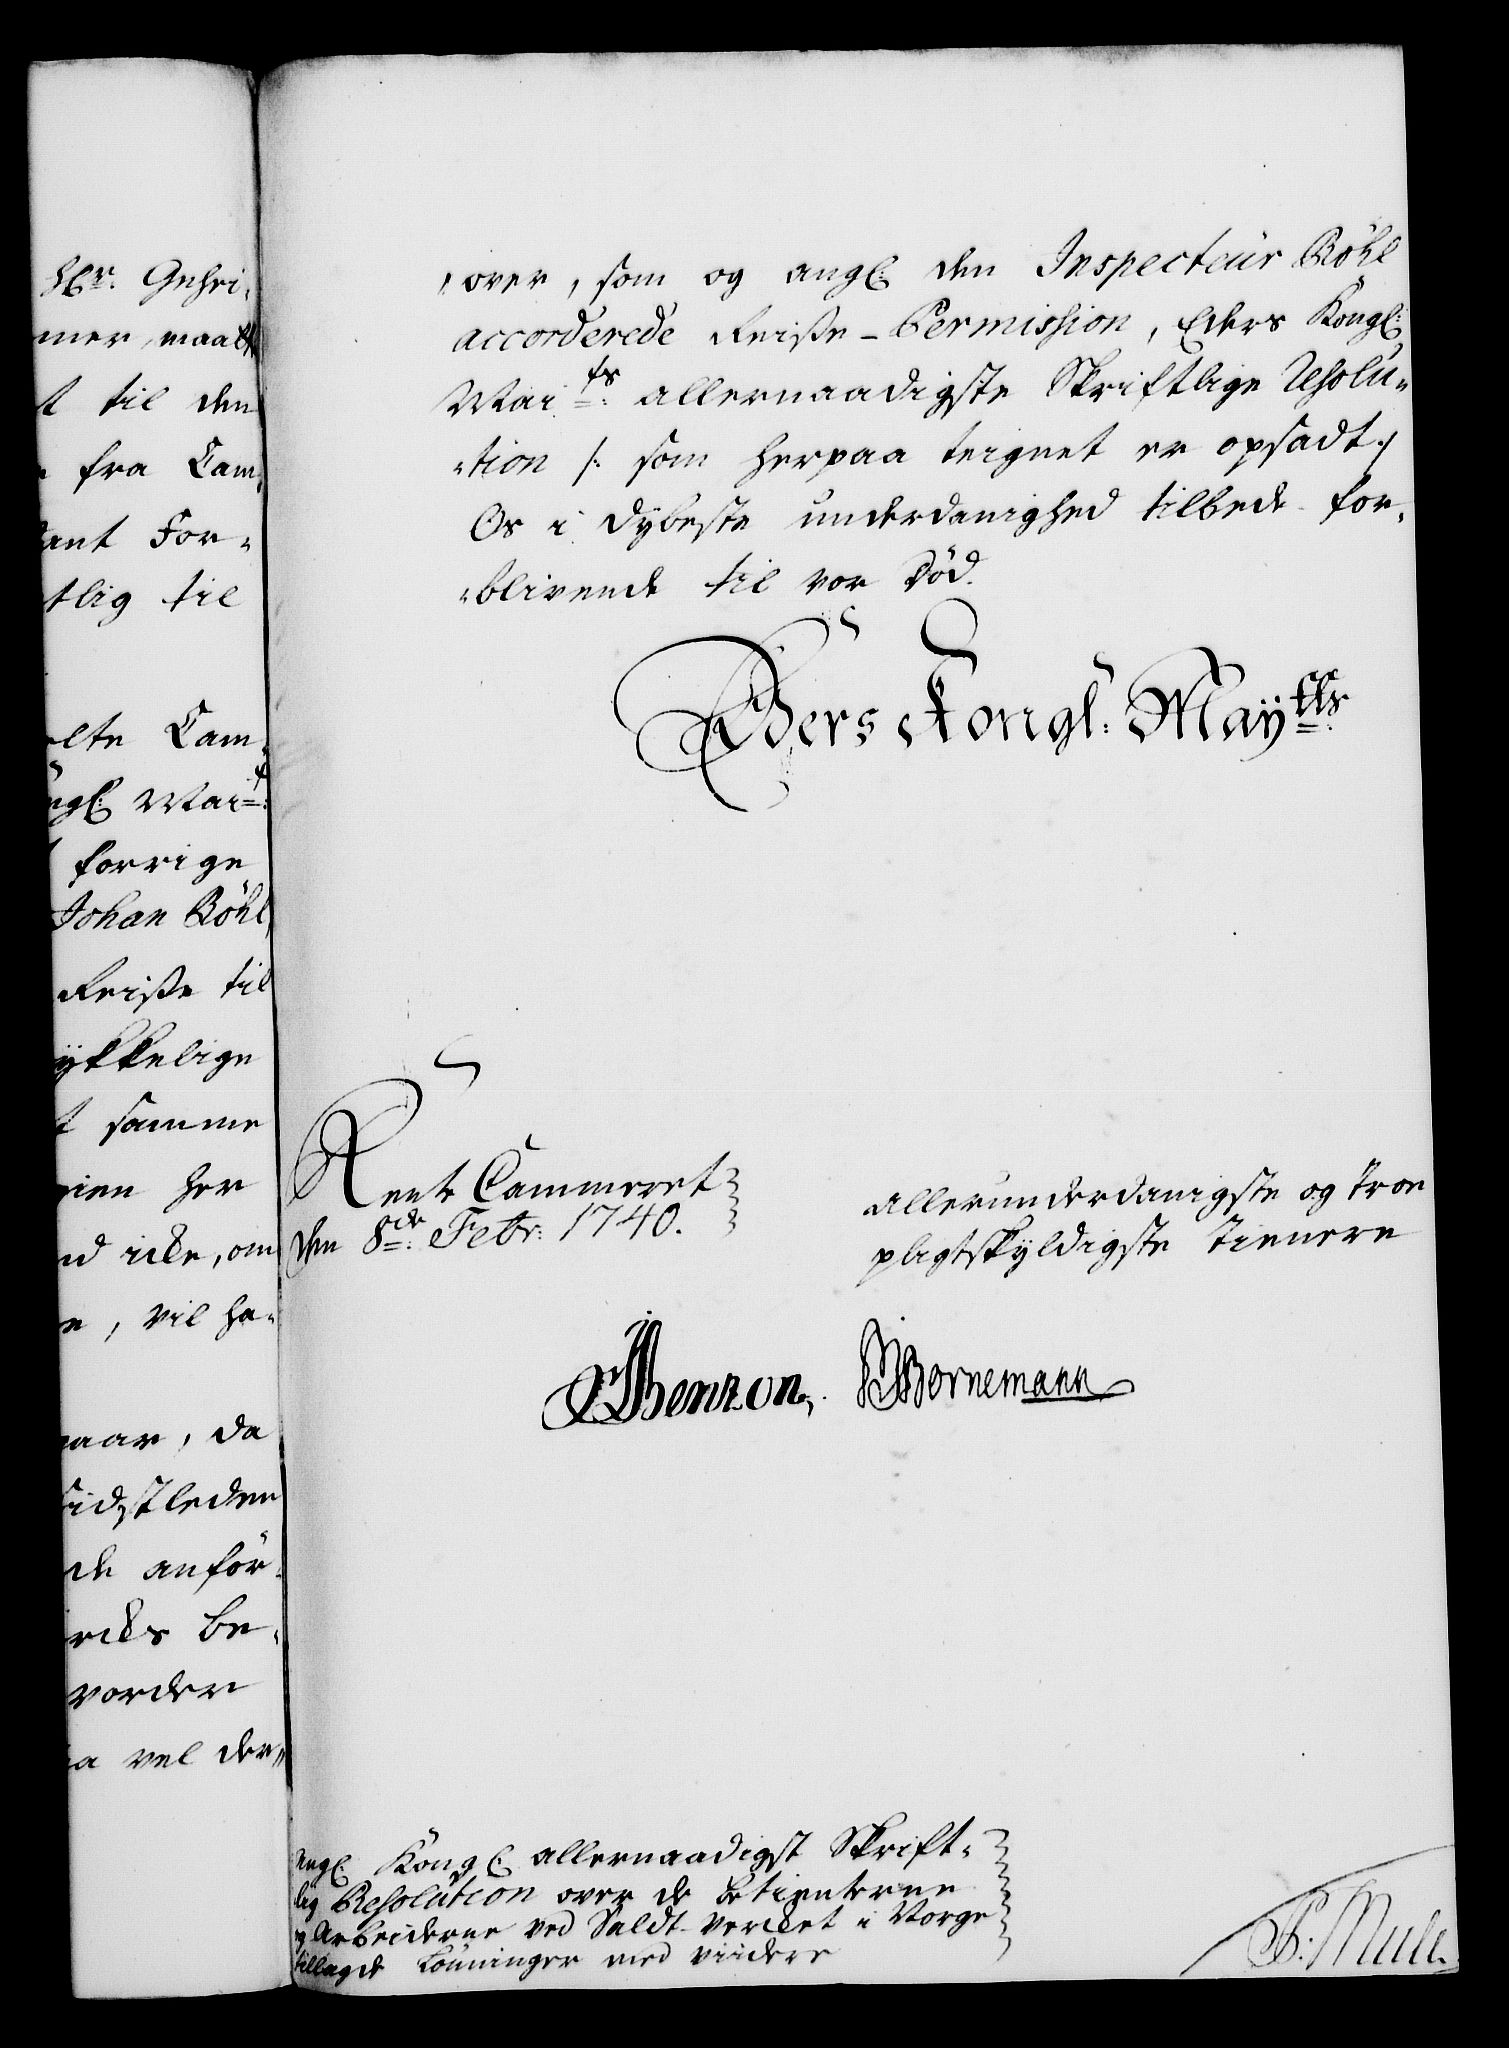 Hr. Gehei-
mer maatt
t til den
fra Cam-
ant For-
tlig til
elte Cam-
ngl: Mai:t
forrige
Johan Böhl,
Reise til
ykkelige
t samme
her
icke, om
e, vil ha-
da
sidstleden
de anför-
be-
vorden
vel der-
over, som og angl: den Inspecteur Böhl
accorderede Reise-Permission, Eders Kongl:
Mai:ts allernaadigste Skriftlige Resolu-
tion /: som herpaa teignet er opsadt :/
Os i dybeste underdanighed tilbede for-
blivende til vor Död.
Eders Kongl: Maÿtts
Rente Cammeret
den 8de Febr: 1740.
allerunderdanigste og troe
pligtskyldigste Tienere
Benzon,
Bornemann
Angl: Kongl: allernaadigst Skrift-
lig Resolution over de betienterne
og Arbeiderne ved Saldt Vercket i Norge
tillagde Lönninger med viidere
P: Mule.